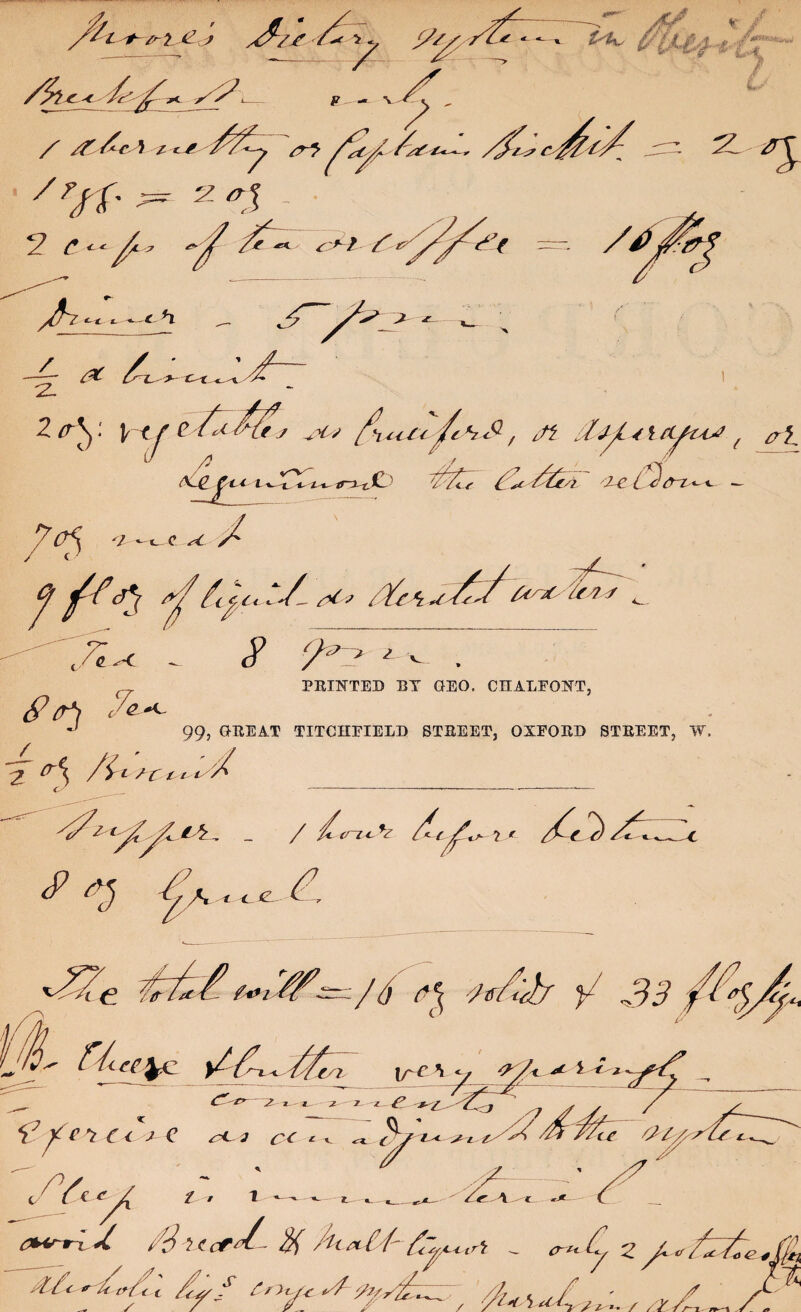 Moore's Dietary system in Obesity
Breakfast - early.
1 abernethy or Captains Bisckit. = 2 oz
1 Egg. = 2 oz
2 cups of tea or coffee = 16 fl:oz
Dinner - 5 pm.
½ a biscuit.
2 oz: vegetables as Cruciferæ, or Asparagus, or
Leguminosæ the latter seldom -
7 oz meat
9 fl oz of liquid - as Aerated waters -
Tea - 8 pm.
PRINTED BY GEO. CHALFONT,
8 oz Tea
99, GREAT TITCHFIELD STREET, OXFORD STREET, W.
½ oz Biscuit
Supper - 1 hour before bedtime
8 oz Gruel.
The total will = 16 oz solids & 33 fl oz liqu
NB - Cheese & butter very sparingly -
comments
Exercise as an adjunct to the system
Sleep is immaterial -
avoid Bread & Malt liquor - only 2 potatoes
Alcoholic liqs congest system, paralysing